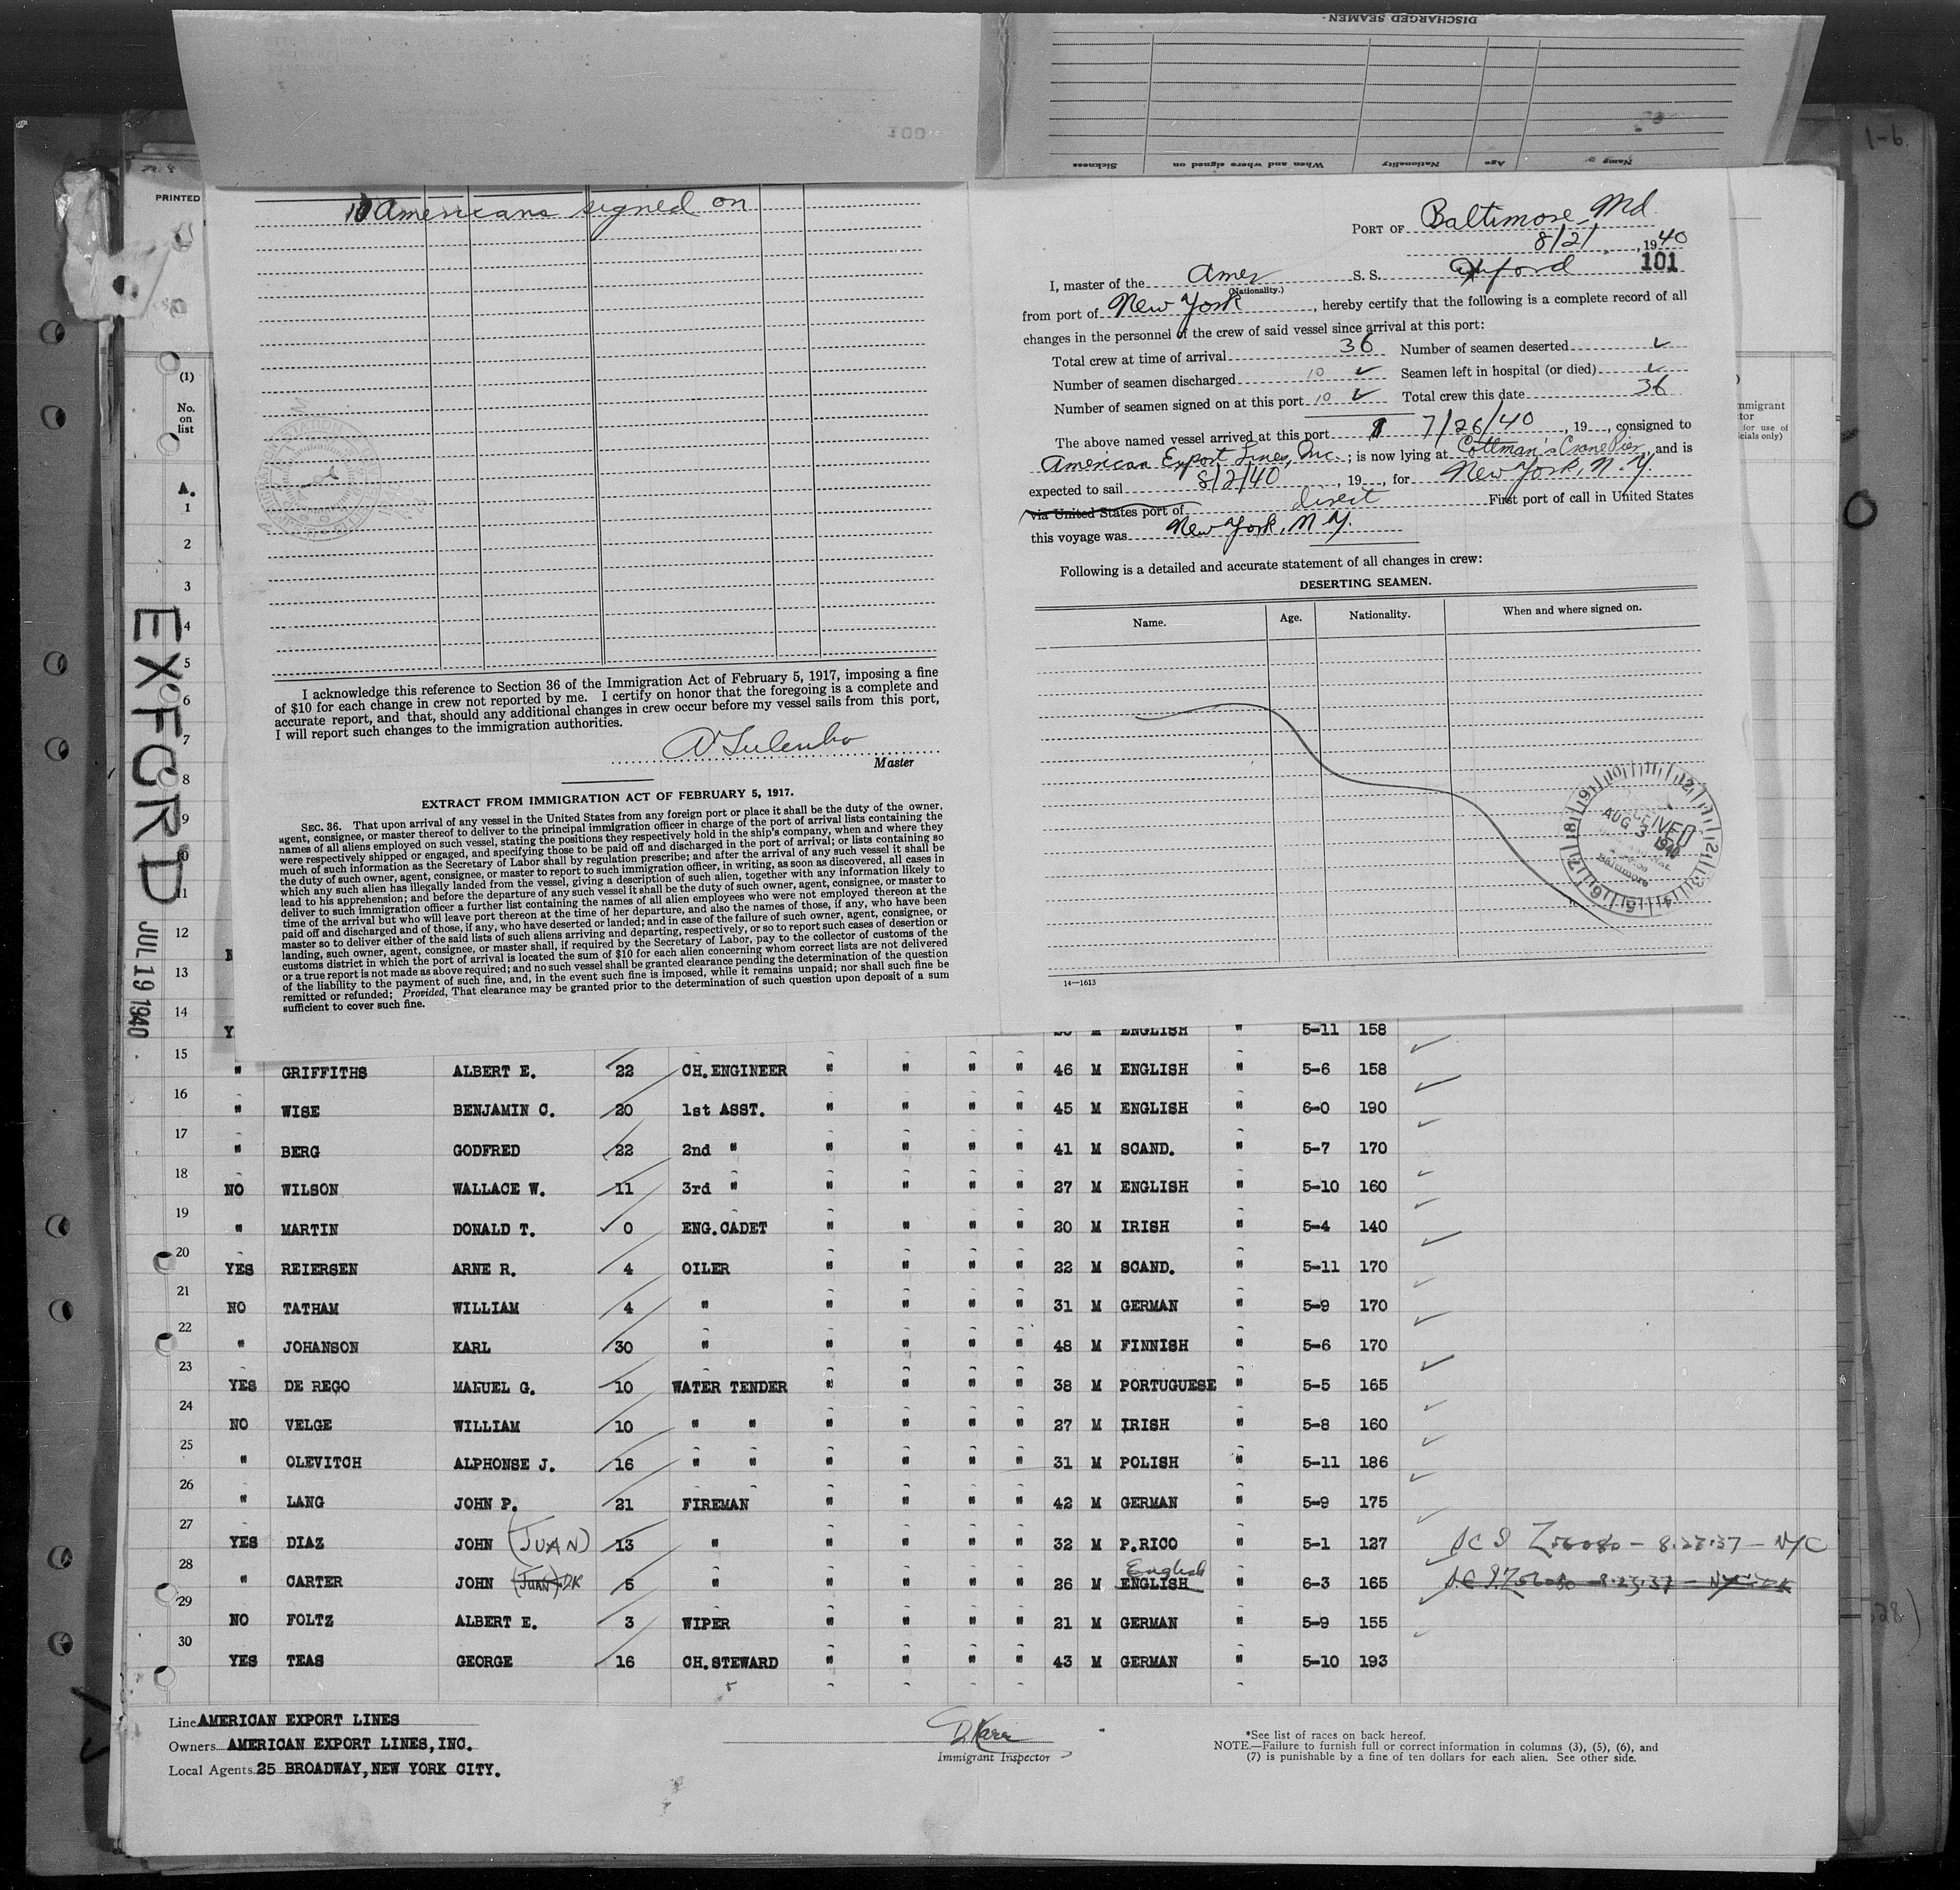 DISCHARGED SEAMEN.
Name
Age
Nationality
When and where signed on
Sickness
100
1-6.
PRINTED
10 Americans signed on
I acknowledge this reference to Section 36 of the Immigration Act of February 5, 1917, imposing a fine
of $10 for each change in crew not reported by me. I certify on honor that the foregoing is a complete and
accurate report, and that, should any additional changes in crew occur before my vessel sails from this port,
I will report such changes to the immigration authorities.
Master
EXTRACT FROM IMMIGRATION ACT OF FEBRUARY 5, 1917.
SEC. 36. That upon arrival of any vessel in the United States from any foreign port or place it shall be the duty of the owner,
agent, consignee, or master thereof to deliver to the principal immigration officer in charge of the port of arrival lists containing the
names of all aliens employed on such vessel, stating the positions they respectively hold in the ship's company, when and where they
were respectively shipped or engaged, and specifying those to be paid off and discharged in the port of arrival; or lists containing so
much of such information as the Secretary of Labor shall by regulation prescribe; and after the arrival of any such vessel it shall be
the duty of such owner, agent, consignee, or master to report to such immigration officer, in writing, as soon as discovered, all cases in
which any such alien has illegally landed from the vessel, giving a description of such alien, together with any information likely to
lead to his apprehension; and before the departure of any such vessel it shall be the duty of such owner, agent, consignee, or master to
deliver to such immigration officer a further list containing the names of all alien employees who were not employed thereon at the
time of the arrival but who will leave port thereon at the time of her departure, and also the names of those, if any, who have been
paid off and discharged and of those, if any, who have deserted or landed; and in case of the failure of such owner, agent, consignee, or
master so to deliver either of the said lists of such aliens arriving and departing, respectively, or so to report such cases of desertion or
landing, such owner, agent, consignee, or master shall, if required by the Secretary of Labor, pay to the collector of customs of the
customs district in which the port of arrival is located the sum of $10 for each alien concerning whom correct lists are not delivered
or a true report is not made as above required; and no such vessel shall be granted clearance pending the determination of the question
of the liability to the payment of such fine, and, in the event such fine is imposed, while it remains unpaid; nor shall such fine be
remitted or refunded; Provided, That clearance may be granted prior to the determination of such question upon deposit of a sum
sufficient to cover such fine.
PORT OF Baltimore, Md.
8/2/, 1940
101
I, master of the Amer S. S. Exford
(Nationality.)
from port of New York, hereby certify that the following is a complete record of all
changes in the personnel of the crew of said vessel since arrival at this port:
Total crew at time of arrival 36 Number of seamen deserted ✓
Number of seamen discharged 10 ✓ Seamen left in hospital (or died) ✓
Number of seamen signed on at this port 10 ✓ Total crew this date 36
The above named vessel arrived at this port 7/26/40, 19__, consigned to
American Export Lines, Inc.; is now lying at Cottman's Crane Pier, and is
expected to sail 8/2/40, 19__, for New York, N.Y.
via United States port of direct First port of call in United States
this voyage was New York, N.Y.
Following is a detailed and accurate statement of all changes in crew:
DESERTING SEAMEN.
Name. Age. Nationality. When and where signed on.
RECEIVED
AUG 3- 1940
Baltimore
14—1613
mmigrant
tor
for use of
icials only)
EXFORD JUL 19 1940
(1)
No.
on
list
A.
1
2
3
4
5
6
7
8
9
10
11
12
13
14 ENGLISH " 5-11 158
15 " GRIFFITHS ALBERT E. 22 CH.ENGINEER " " " " 46 M ENGLISH " 5-6 158
16 " WISE BENJAMIN C. 20 1st ASST. " " " " 45 M ENGLISH " 6-0 190
17 " BERG GODFRED 22 2nd " " " " " 41 M SCAND. " 5-7 170
18 NO WILSON WALLACE W. 11 3rd " " " " " 27 M ENGLISH " 5-10 160
19 " MARTIN DONALD T. 0 ENG.CADET " " " " 20 M IRISH " 5-4 140
20 YES REIERSEN ARNE R. 4 OILER " " " " 22 M SCAND. " 5-11 170
21 NO TATHAM WILLIAM 4 " " " " " 31 M GERMAN " 5-9 170
22 " JOHANSON KARL 30 " " " " " 48 M FINNISH " 5-6 170
23 YES DE REGO MANUEL G. 10 WATER TENDER " " " " 38 M PORTUGUESE " 5-5 165
24 NO VELGE WILLIAM 10 " " " " " " 27 M IRISH " 5-8 160
25 " OLEVITCH ALPHONSE J. 16 " " " " " " 31 M POLISH " 5-11 186
26 " LANG JOHN P. 21 FIREMAN " " " " 42 M GERMAN " 5-9 175
27 YES DIAZ JOHN (JUAN) 13 " " " " " 32 M P.RICO " 5-1 127
28 " CARTER JOHN (Juan) DK 5 " " " " " 26 M ENGLISH English " 6-3 165
29 NO FOLTZ ALBERT E. 3 WIPER " " " " 21 M GERMAN " 5-9 155
30 YES TEAS GEORGE 16 CH.STEWARD " " " " 43 M GERMAN " 5-10 193
Line AMERICAN EXPORT LINES
Owners AMERICAN EXPORT LINES,INC.
Local Agents 25 BROADWAY,NEW YORK CITY.
Immigrant Inspector
*See list of races on back hereof.
NOTE.—Failure to furnish full or correct information in columns (3), (5), (6), and
(7) is punishable by a fine of ten dollars for each alien. See other side.